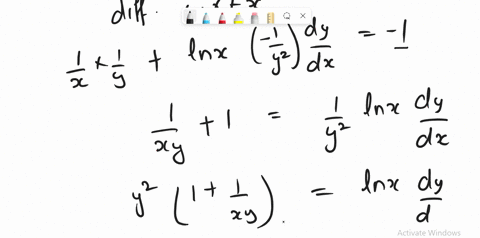 diff.
1/x × 1/y + lnx (-1/y²) dy/dx = -1
1/xy + 1 = 1/y² lnx dy/dx
y² (1 + 1/xy) = lnx dy/d
Activate Windows